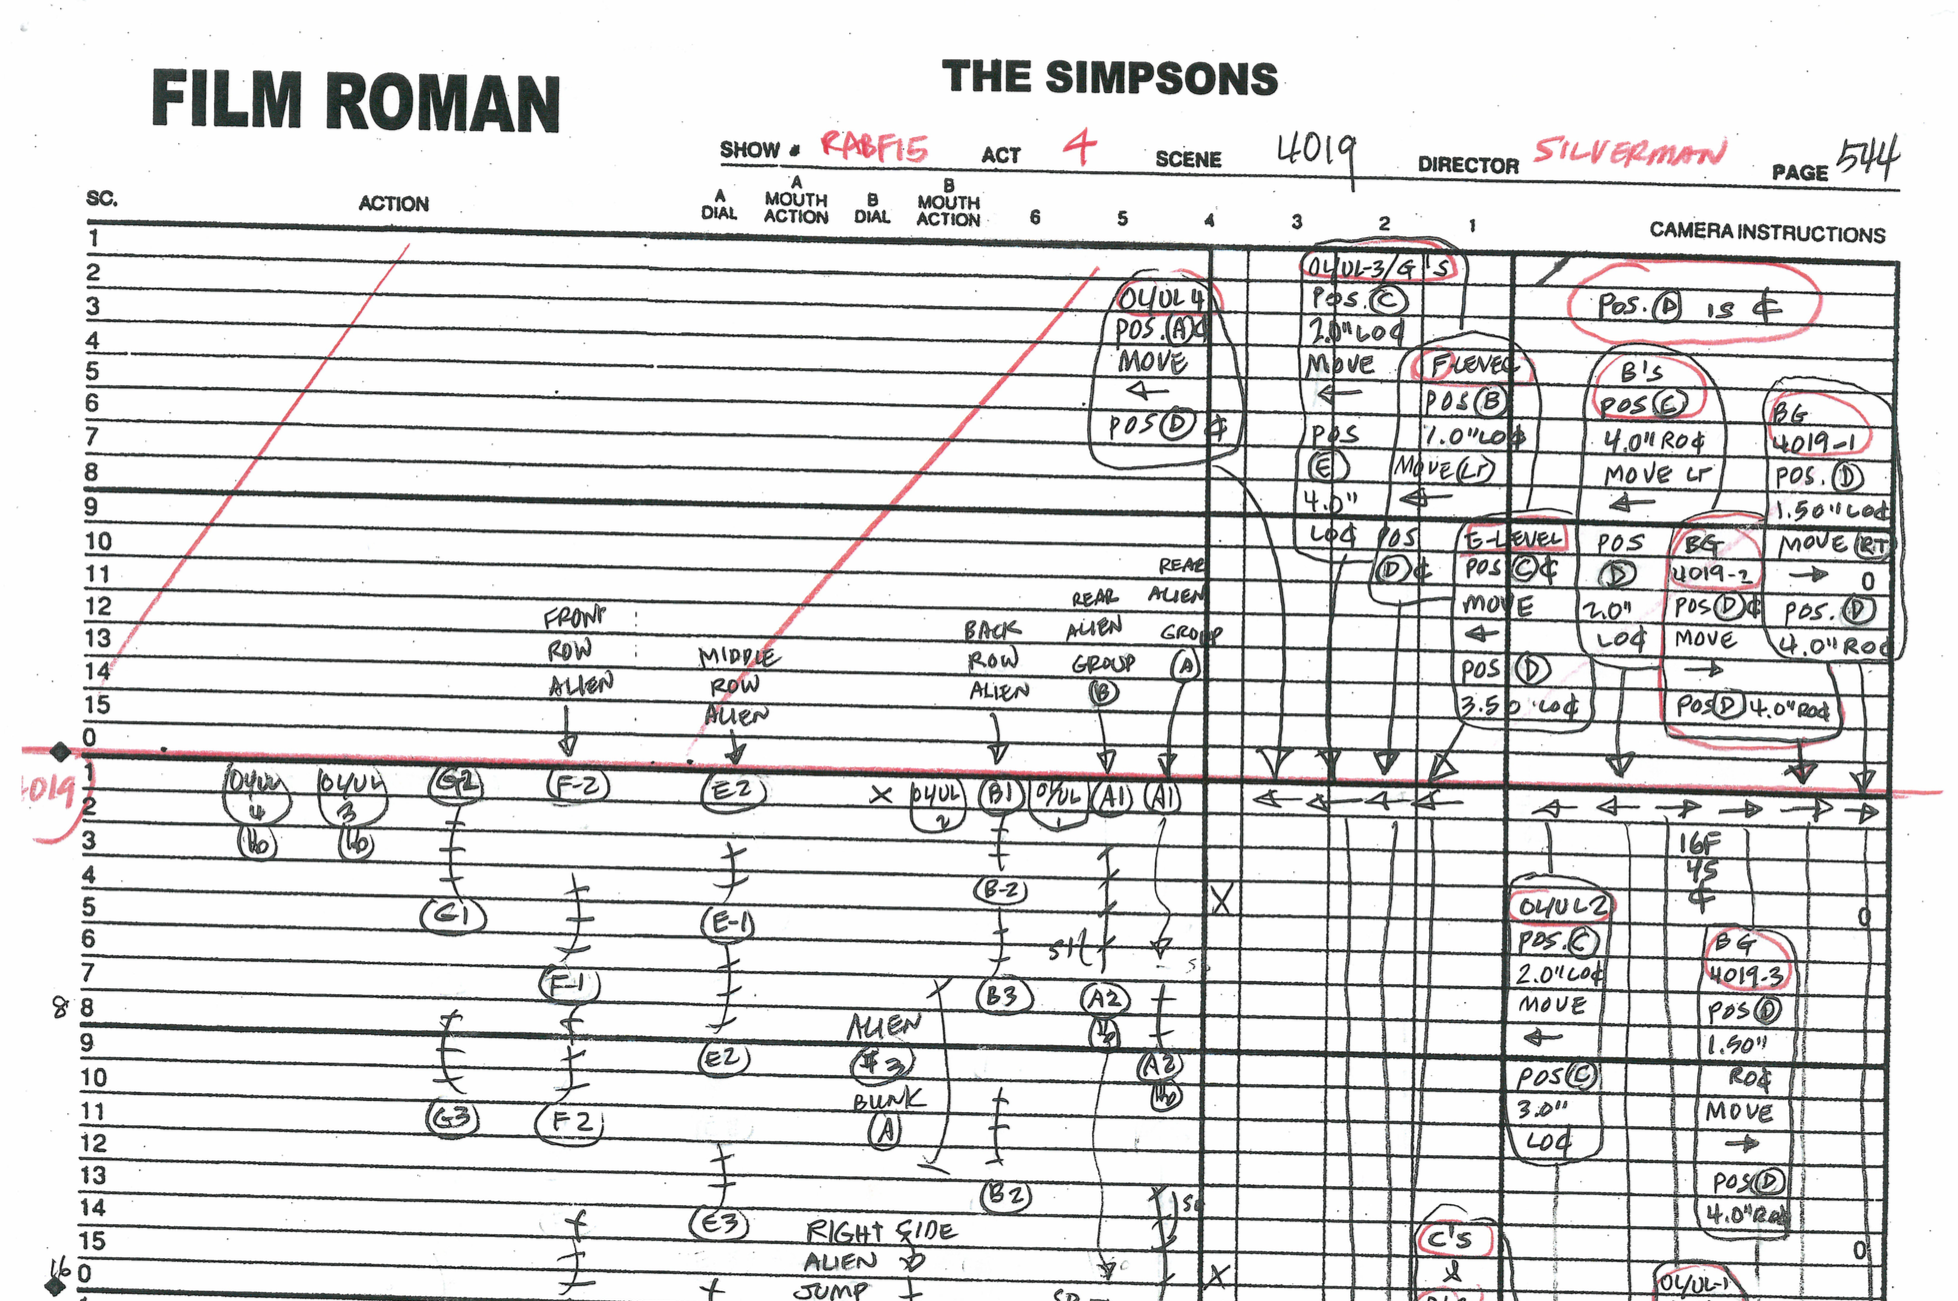 FILM ROMAN
THE SIMPSONS
SHOW # RABF15 ACT 4 SCENE 4019 DIRECTOR SILVERMAN PAGE 544
SC. ACTION A DIAL A MOUTH ACTION B DIAL B MOUTH ACTION 6 5 4 3 2 1 CAMERA INSTRUCTIONS
1
2
3
4
5
6
7
8
9
10
11
12
13
14
15
0
FRONT
ROW
ALIEN
MIDDLE
ROW
ALIEN
BACK
ROW
ALIEN
REAR
ALIEN
GROUP
B
REAR
ALIEN
GROUP
A
OL/UL 4
POS. A ¢
MOVE
←
POS D ¢
OL/UL-3/G'S
POS. C
2.0" LO¢
MOVE
←
POS
E
4.0"
LO¢
F-LEVEL
POS B
1.0" LO¢
MOVE (LT)
←
POS
D ¢
E-LEVEL
POS C ¢
MOVE
←
POS D
3.50 LO¢
POS. D IS ¢
B'S
POS E
4.0" RO¢
MOVE LT
←
POS
D
2.0"
LO¢
BG
4019-2
POS D ¢
MOVE
→
POS D 4.0" RO¢
BG
4019-1
POS. D
1.50" LO¢
MOVE RT
→ 0
POS. D
4.0" RO¢
4019
1
2
3
4
5
6
7
8 8
9
10
11
12
13
14
15
16 0
OL/UL 4
OL/UL 3
G2
F-2
E2
X
OL/UL 2
B1
OL/UL 1
A1
A1
← ← ← ← ← ← → → → →
G1
G3
F-1
F2
E-1
E2
E3
B-2
B3
B2
A2
A2
X
X
ALIEN
#3
BUNK
A
RIGHT SIDE
ALIEN
JUMP
16F
45
¢
OL/UL 2
POS. C
2.0" LO¢
MOVE
←
POS C
3.0"
LO¢
BG
4019-3
POS D
1.50"
RO¢
MOVE
→
POS D
4.0" RO¢
0
0
C'S
&
OL/UL-1